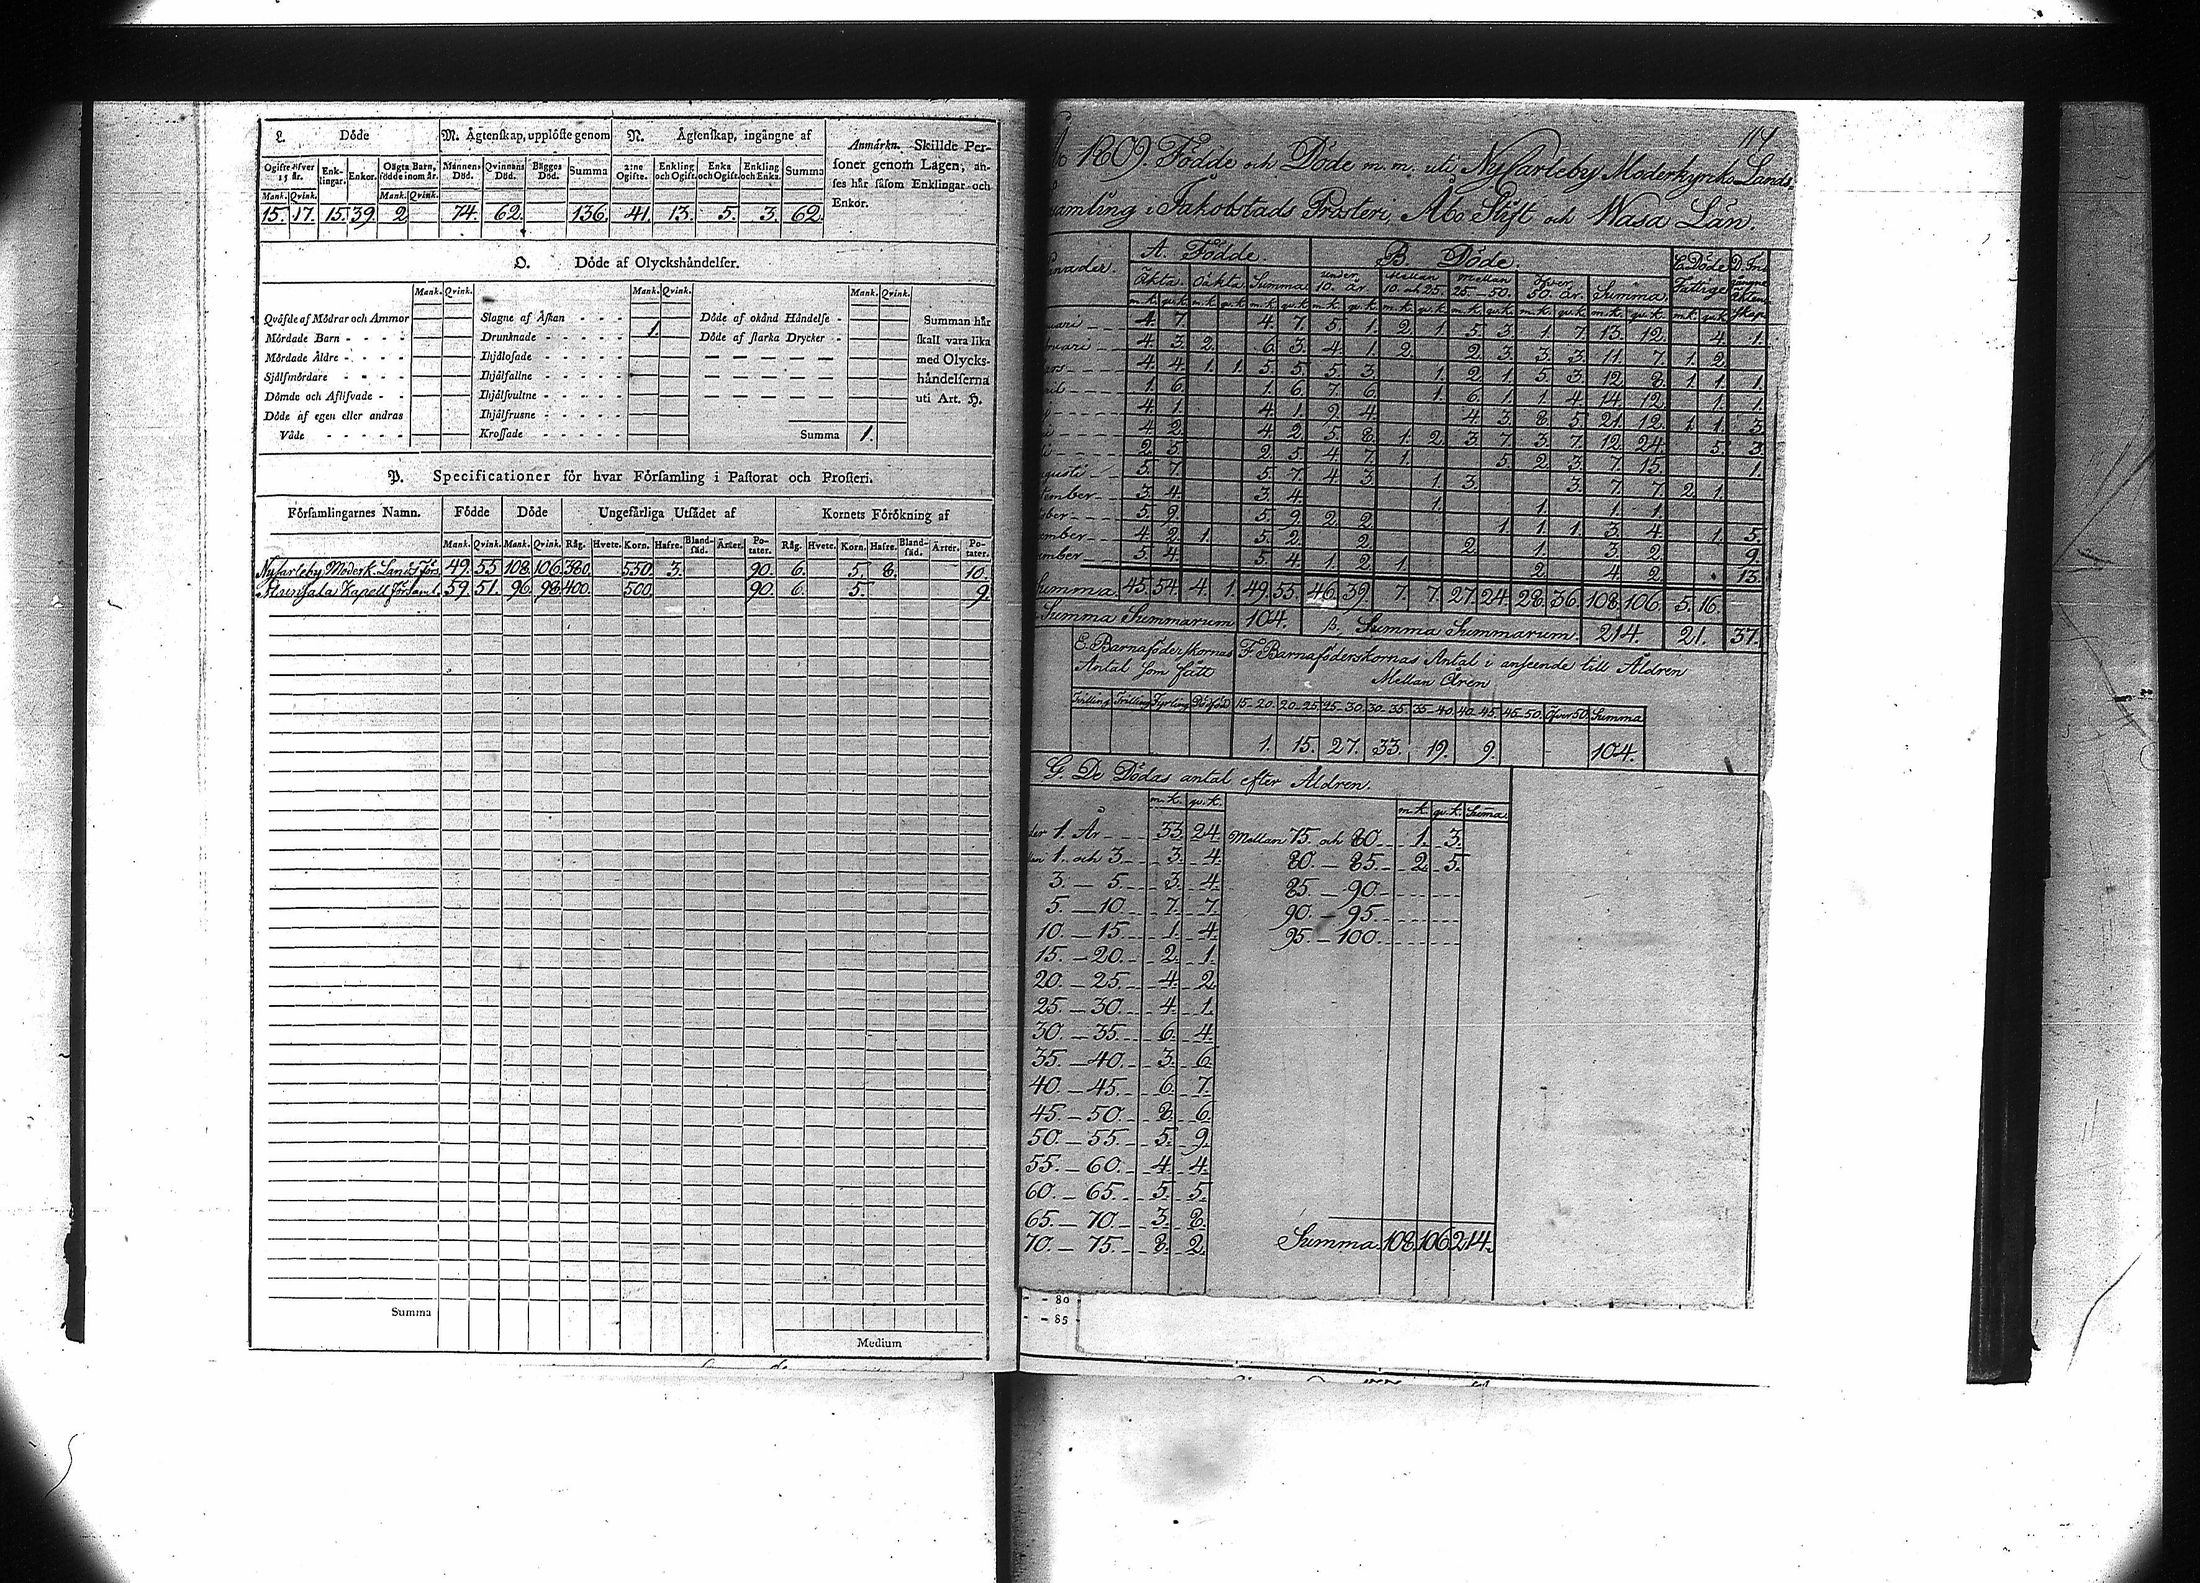 L. Döde M. Ägtenskap, upplöste genom N. Ägtenskap, ingångne af
Ogifte öfver 15 år. Enk-lingar. Enkor. Oägta Barn, födde inom år. Männens Död. Qvinnans Död. Bägges Död. Summa 2:ne Ogifte. Enkling och Ogift. Enka och Ogift. Enkling och Enka. Summa
Mank. Qvink. Mank. Qvink.
15. 17. 15. 39. 2. 74. 62. 136. 41. 13. 5. 3. 62.
Anmärkn. Skillde Per-
soner genom Lagen, an-
ses här såsom Enklingar och
Enkor.
O. Döde af Olyckshändelser.
Mank. Qvink. Mank. Qvink. Mank. Qvink.
Qväfde af Mödrar och Ammor
Mördade Barn - - - -
Mördade Äldre - - - -
Självmördare - - - -
Dömde och Aflifvade - -
Döde af egen eller andras
Våde - - - - -
Slagne af Åskan - - -
Drunknade - - - - - 1.
Ihjälosade - - - - -
Ihjälfallne - - - - -
Ihjälsvultne - - - - -
Ihjälfrusne - - - - -
Krossade - - - - -
Döde af okänd Händelse -
Döde af starka Drycker -
Summa 1.
Summan här
skall vara lika
med Olycks-
händelserna
uti Art. H.
P. Specificationer för hvar Församling i Pastorat och Prosteri.
Församlingarnes Namn. Födde Döde Ungefärliga Utsädet af Kornets Förökning af
Mank. Qvink. Mank. Qvink. Råg. Hvete. Korn. Hafre. Bland-säd. Ärter. Po-tater. Råg. Hvete. Korn. Hafre. Bland-säd. Ärter. Po-tater.
Nycarleby Moderk. Lands förs. 49. 55. 108. 106. 380. 550. 3. 90. 6. 5. 8. 10.
Munsala Kapell församl. 59. 51. 96. 98. 400. 500. 90. 6. 5. 9.
Summa
Medium
114
1809. Födde och Döde m. m. uti Nycarleby Moderkyrko Lands
samling i Jakobstads Prosteri, Åbo Stift och Wasa Län.
A. Födde. B. Döde. C. Döde Fattige D. In-gångne Äkten-skap
Äkta. Oäkta. Summa. under 10. år. Mellan 10. och 25. Mellan 25.-50. Öfver 50. år. Summa.
m.k. qv.k. m.k. qv.k. m.k. qv.k. m.k. qv.k. m.k. qv.k. m.k. qv.k. m.k. qv.k. m.k. qv.k. m.k. qv.k.
4. 7. 4. 7. 5. 1. 2. 1. 5. 3. 1. 7. 13. 12. 4. 1.
4. 3. 2. 6. 3. 4. 1. 2. 2. 3. 3. 3. 11. 7. 1. 2.
4. 4. 1. 1. 5. 5. 5. 3. 1. 2. 1. 5. 3. 12. 8. 1. 1. 1.
1. 6. 1. 6. 7. 6. 1. 6. 1. 1. 4. 14. 12. 1. 1.
4. 1. 4. 1. 9. 4. 4. 3. 8. 5. 21. 12. 1. 1. 3.
4. 2. 4. 2. 5. 8. 1. 2. 3. 7. 3. 7. 12. 24. 5. 3.
2. 5. 2. 5. 4. 7. 1. 5. 2. 3. 7. 15. 1.
5. 7. 5. 7. 4. 3. 1. 3. 3. 7. 7. 2. 1.
3. 4. 3. 4. 1. 1. 1. 1.
5. 9. 5. 9. 2. 2. 1. 1. 1. 3. 4. 1. 5.
4. 2. 1. 5. 2. 2. 2. 1. 3. 2. 9.
5. 4. 5. 4. 1. 2. 1. 2. 4. 2. 13.
Summa 45. 54. 4. 1. 49. 55. 46. 39. 7. 7. 27. 24. 28. 36. 108. 106. 5. 16.
Summa Summarum 104. Summa Summarum 214. 21. 37.
E. Barnaföderskornas Antal som fått
F. Barnaföderskornas Antal i anseende till Åldren
Mellan Åren
Tvilling Trilling Fyrling Dödföd 15-20. 20-25. 25-30. 30-35. 35-40. 40-45. 45-50. Öfver 50. Summa
1. 15. 27. 33. 19. 9. 104.
G. De Dödas antal efter Åldren.
m.k. qv.k. m.k. qv.k. Suma.
1. År 33. 24. Mellan 75. och 80. 1. 3.
1. och 3. 3. 4. 80. - 85. 2. 5.
3. - 5. 3. 4. 85 - 90.
5. - 10. 7. 7. 90. - 95.
10. - 15. 1. 4. 95. - 100.
15. - 20. 2. 1.
20. - 25. 4. 2.
25. - 30. 4. 1.
30. - 35. 6. 4.
35. - 40. 3. 6.
40. - 45. 6. 7.
45. - 50. 8. 6.
50. - 55. 5. 9.
55. - 60. 4. 4.
60. - 65. 5. 5.
65. - 70. 3. 8.
70. - 75. 8. 2. Summa 108. 106. 214.
- - 80
- - 85